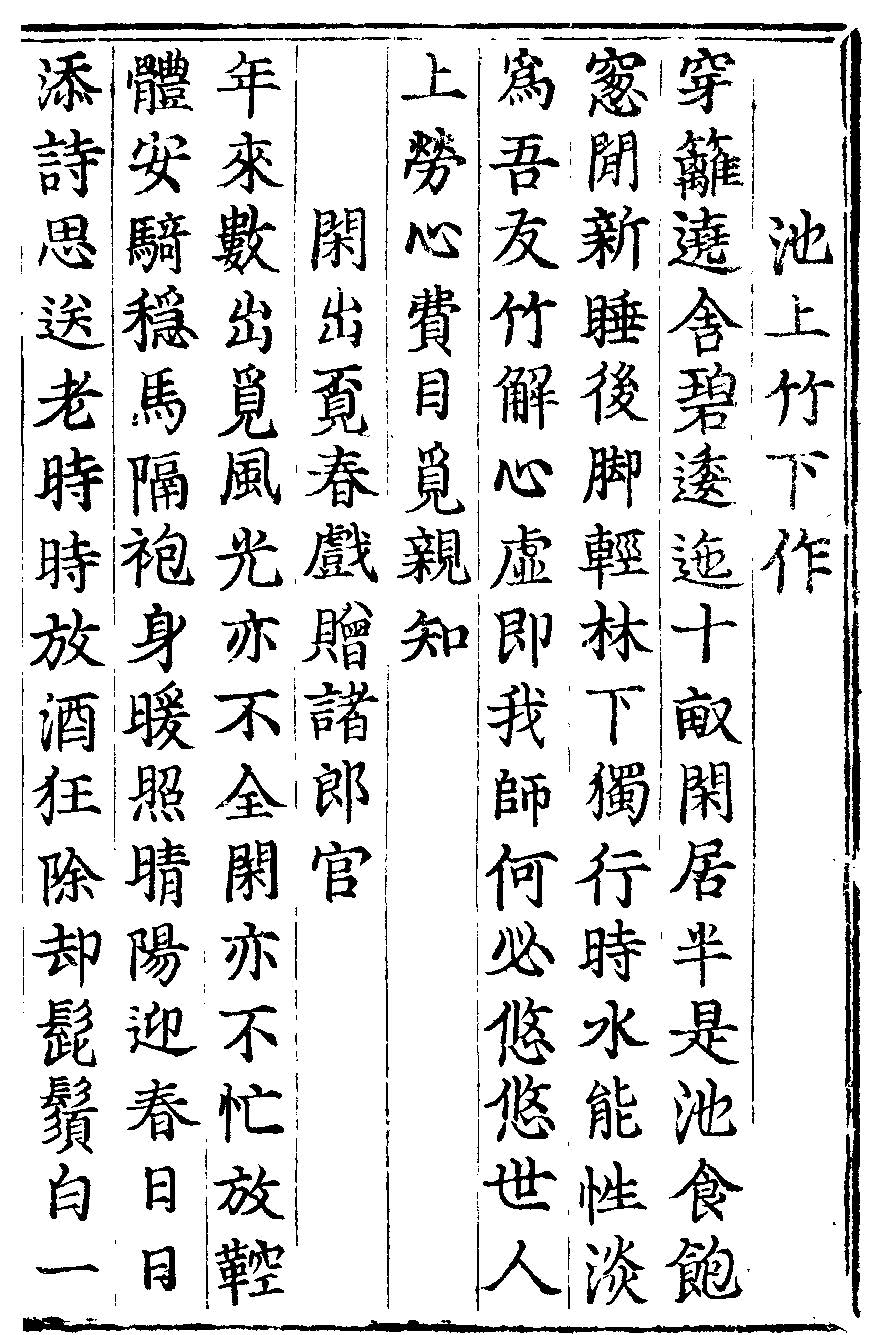 池上竹下作
穿籬遶舍碧逶迤十畝閑居半是池食飽
窻閒新睡後脚輕林下獨行時水能性淡
爲吾友竹解心虛即我師何必悠悠世人
上勞心費目覓親知
閑出覔春戲贈諸郎官
年來數出覓風光亦不全閑亦不忙放鞚
體安騎穩馬隔袍身暖照晴陽迎春日日
添詩思送老時時放酒狂除却髭鬚白一